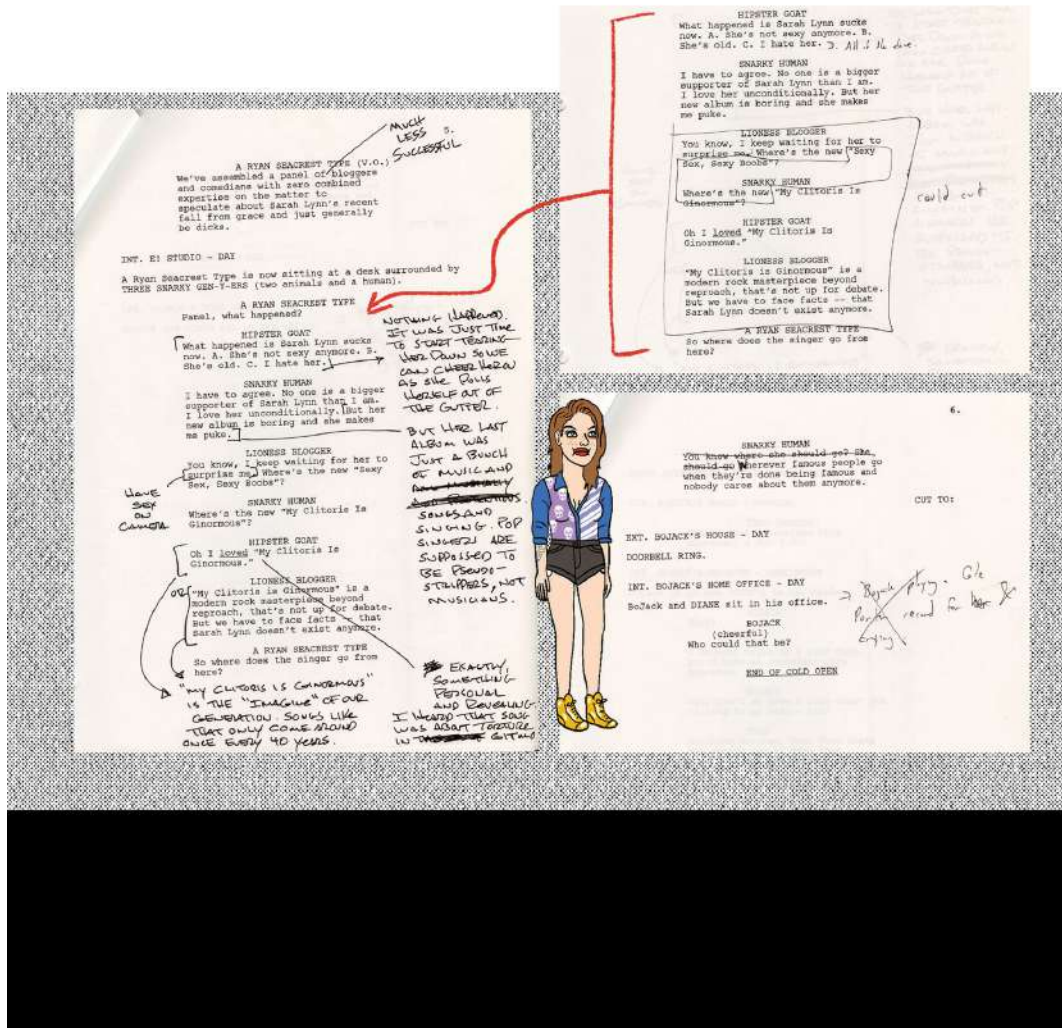 MUCH
LESS
SUCCESSFUL
5.
A RYAN SEACREST TYPE (V.O.)
We've assembled a panel of bloggers
and comedians with zero combined
expertise on the matter to
speculate about Sarah Lynn's recent
fall from grace and just generally
be dicks.
INT. E! STUDIO - DAY
A Ryan Seacrest Type is now sitting at a desk surrounded by
THREE SNARKY GEN-Y-ERS (two animals and a human).
A RYAN SEACREST TYPE
Panel, what happened?
HIPSTER GOAT
What happened is Sarah Lynn sucks
now. A. She's not sexy anymore. B.
She's old. C. I hate her.
SNARKY HUMAN
I have to agree. No one is a bigger
supporter of Sarah Lynn than I am.
I love her unconditionally. But her
new album is boring and she makes
me puke.
LIONESS BLOGGER
You know, I keep waiting for her to
surprise me. Where's the new "Sexy
Sex, Sexy Boobs"?
HAVE
SEX
ON
CAMERA
SNARKY HUMAN
Where's the new "My Clitoris Is
Ginormous"?
HIPSTER GOAT
Oh I loved "My Clitoris Is
Ginormous."
OR
LIONESS BLOGGER
"My Clitoris is Ginormous" is a
modern rock masterpiece beyond
reproach, that's not up for debate.
But we have to face facts -- that
Sarah Lynn doesn't exist anymore.
A RYAN SEACREST TYPE
So where does the singer go from
here?
"MY CLITORIS IS GINORMOUS"
IS THE "IMAGINE" OF OUR
GENERATION. SONGS LIKE
THAT ONLY COME AROUND
ONCE EVERY 40 YEARS.
NOTHING HAPPENED.
IT WAS JUST TIME
TO START TEARING
HER DOWN SO WE
CAN CHEER HER ON
AS SHE PULLS
HERSELF OUT OF
THE GUTTER.
BUT HER LAST
ALBUM WAS
JUST A BUNCH
OF MUSIC AND
SONGS AND
SINGING. POP
SINGERS ARE
SUPPOSSED TO
BE PSEUDO-
STRIPPERS, NOT
MUSICIANS.
EXACTLY,
SOMETHING
PERSONAL
AND REVEALING.
I HEARD THAT SONG
WAS ABOUT TORTURE
IN GITMO
HIPSTER GOAT
What happened is Sarah Lynn sucks
now. A. She's not sexy anymore. B.
She's old. C. I hate her. D. All of the
SNARKY HUMAN
I have to agree. No one is a bigger
supporter of Sarah Lynn than I am.
I love her unconditionally. But her
new album is boring and she makes
me puke.
LIONESS BLOGGER
You know, I keep waiting for her to
surprise me. Where's the new "Sexy
Sex, Sexy Boobs"?
SNARKY HUMAN
Where's the new "My Clitoris Is
Ginormous"?
could cut
HIPSTER GOAT
Oh I loved "My Clitoris Is
Ginormous."
LIONESS BLOGGER
"My Clitoris is Ginormous" is a
modern rock masterpiece beyond
reproach, that's not up for debate.
But we have to face facts -- that
Sarah Lynn doesn't exist anymore.
A RYAN SEACREST TYPE
So where does the singer go from
here?
6.
SNARKY HUMAN
You know where she should go? She
should go Wherever famous people go
when they're done being famous and
nobody cares about them anymore.
CUT TO:
EXT. BOJACK'S HOUSE - DAY
DOORBELL RING.
INT. BOJACK'S HOME OFFICE - DAY
BoJack and DIANE sit in his office.
BOJACK
(cheerful)
Who could that be?
END OF COLD OPEN
BoJack
record for